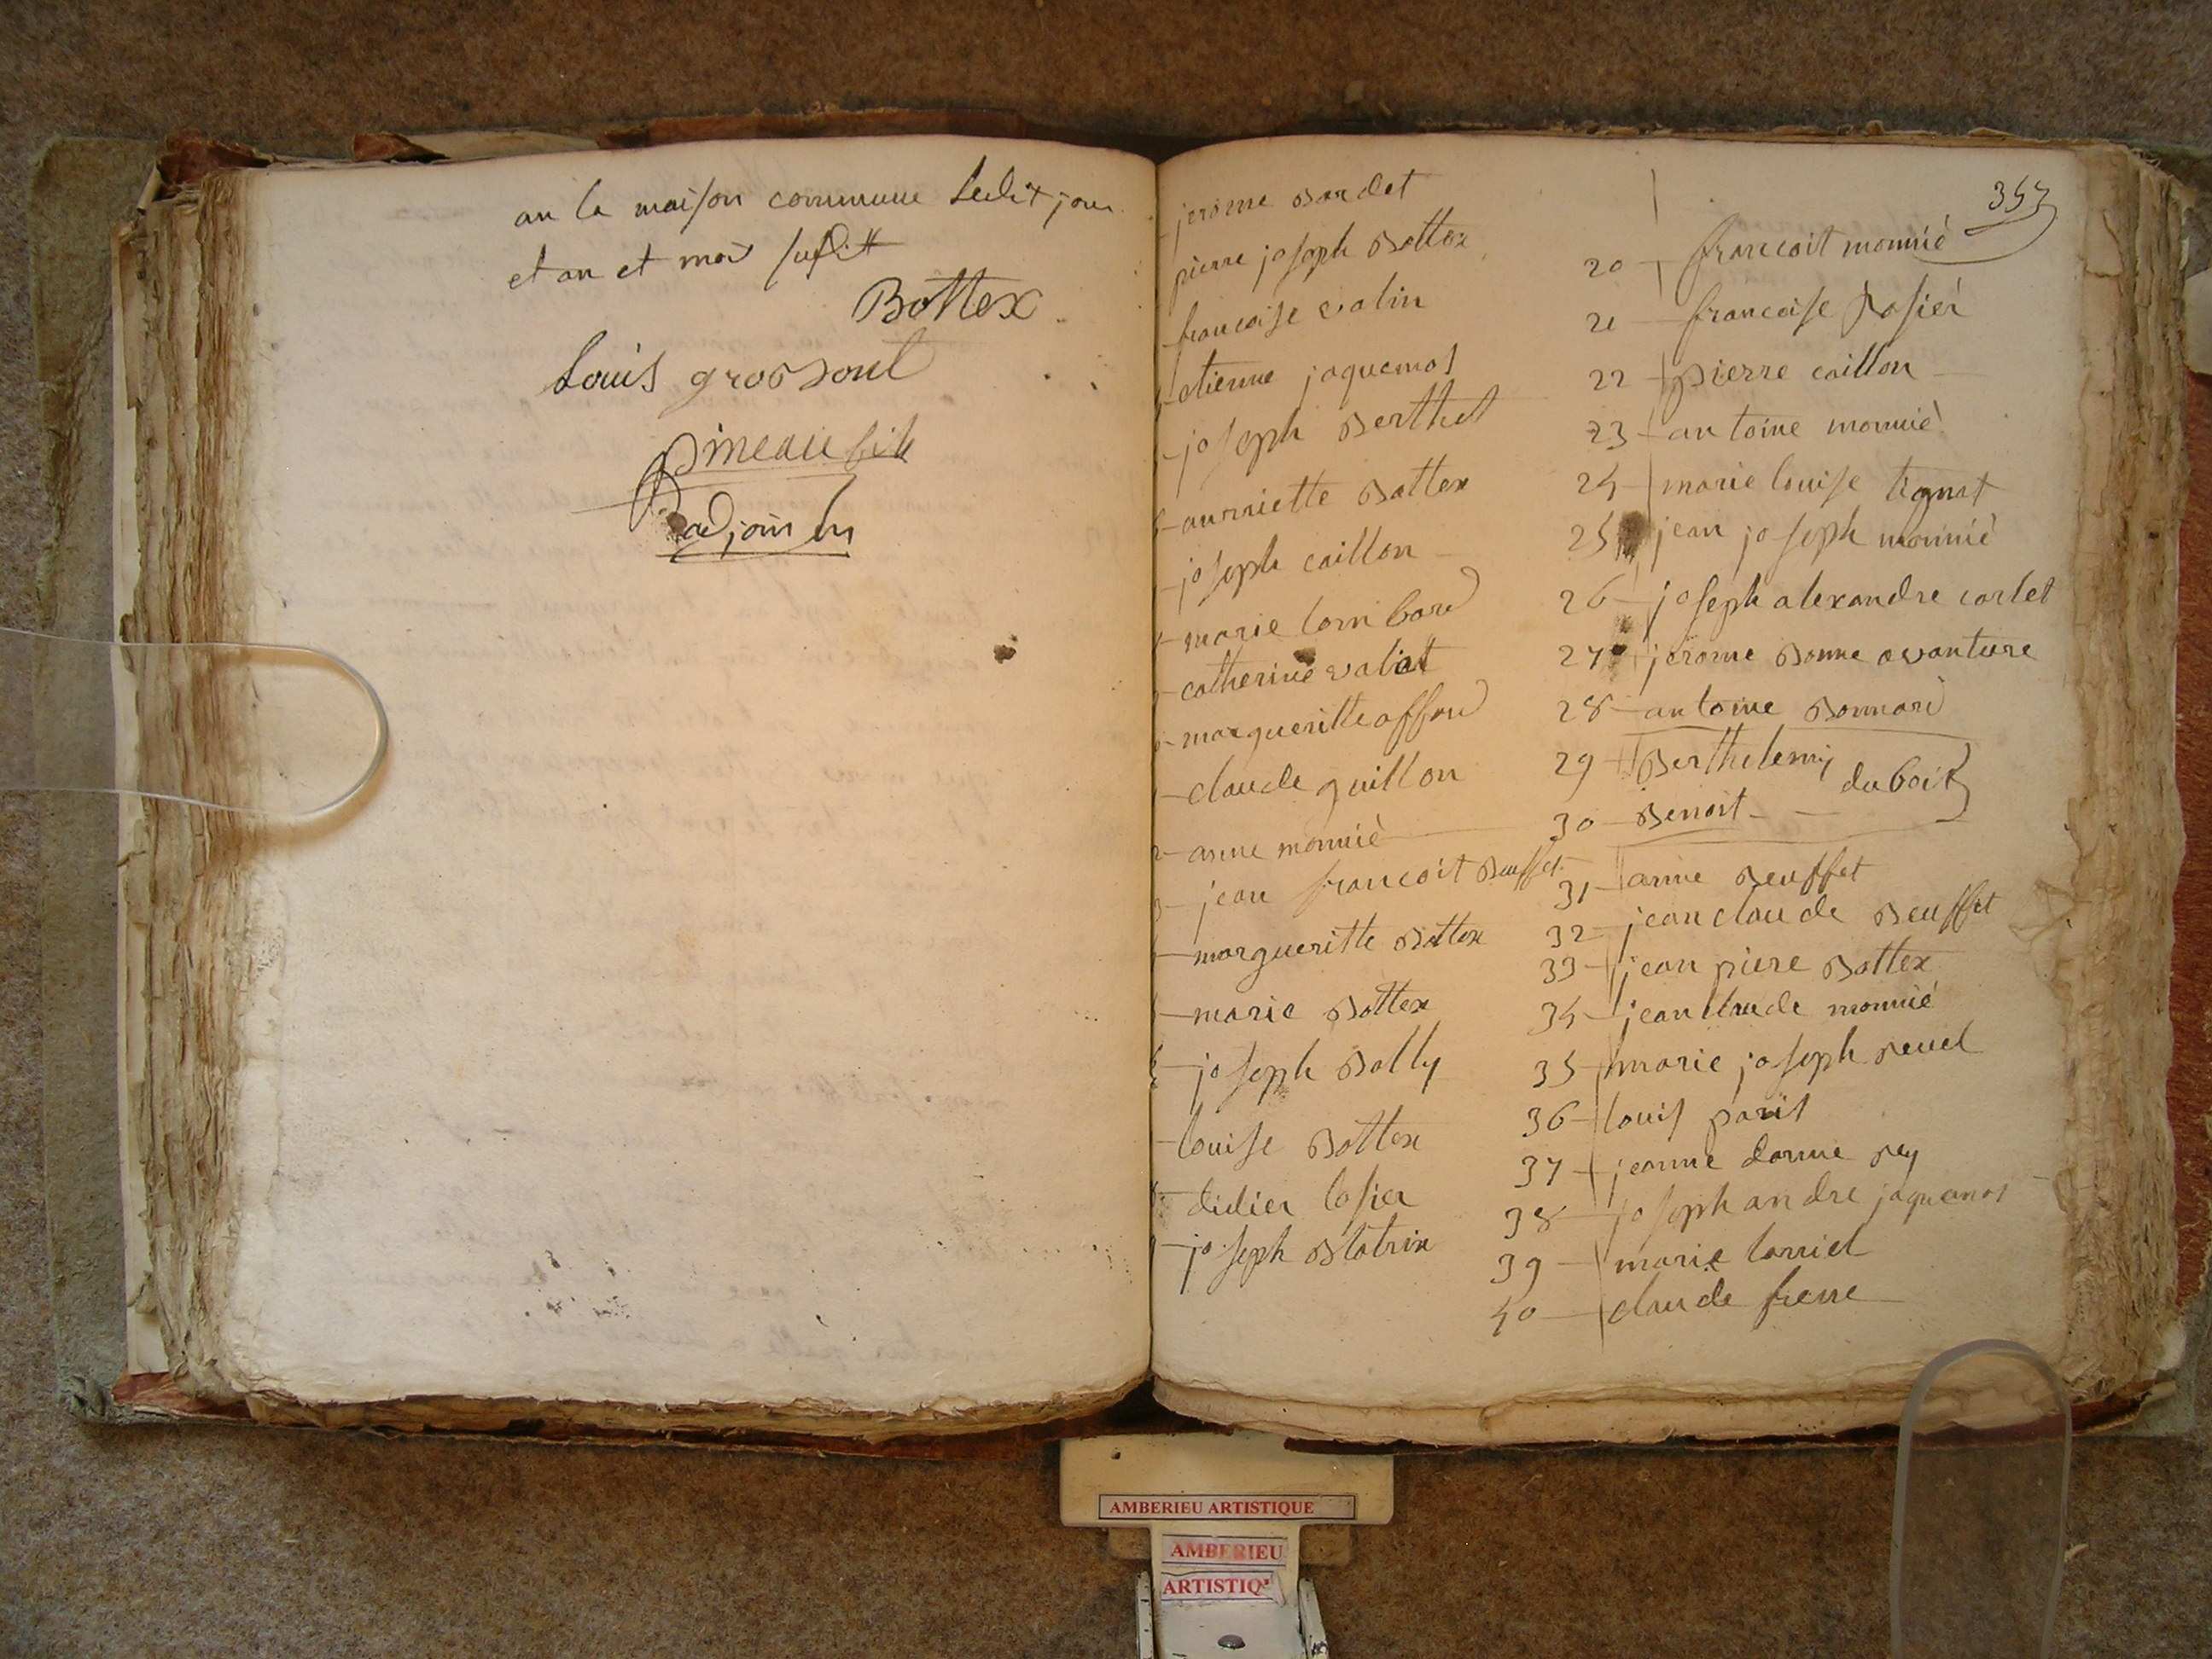 an la maison commune ledit jour
et an et moi susdit
Bottex
Louis grosjout
pineau fils
adjoint
357
jerome Bardet
pierre joseph Bottex
francoise valin
etienne jaquemos
joseph Berthet
anrriette Bottex
joseph caillon
marie lombard
catherine valiat
margueritte
claude guillon
anne monnié
jean francoit Beuffet
margueritte Bottex
marie Bottex
joseph Bolly
louise Bottex
didier losier
joseph Blatrix
20 francoit monnié
21 francoise
22 pierre caillon
23 antoine monnié
24 marie louise tignat
25 jean joseph monnié
26 joseph alexandre carlet
27 jerome Bonne avanture
28 antoine Bonnard
29 Berthelemy duboit
30 Benoit
31 anne Beuffet
32 jean claude Beuffet
33 jean piere Bottex
34 jean claude monnié
35 marie joseph
36 louis paris
37 jeanne danne rey
38 joseph andre jaquemos
39 marie
40 claude frene
AMBERIEU ARTISTIQUE
AMBERIEU
ARTISTIQ